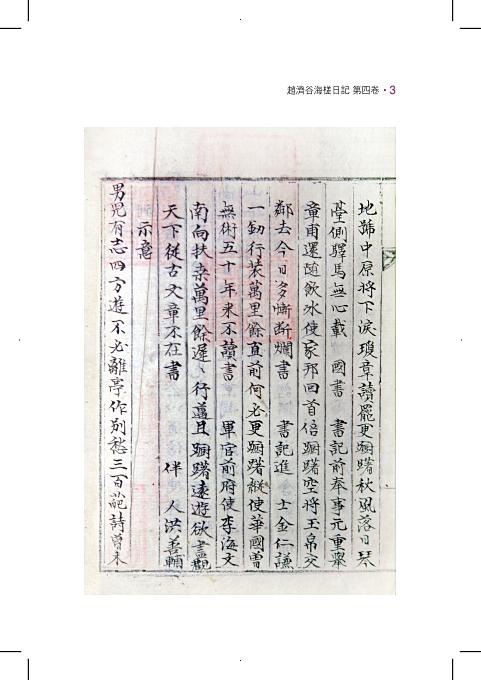 趙濟谷海槎日記 第四卷 · 3
地號中原將下淚瓊章讀罷更踟躇秋風落日琴
臺側驛馬無心載 國書 書記前奉事元重擧
章甫還隨飮冰使家那回首倍踟躇空將玉帛交
鄰去今日多慚斷爛書 書記進士金仁謙
一劒行裝萬里餘直前何必更踟躇縱使華國曾
無術五十年來不讀書 軍官前府使李海文
南向扶桑萬里餘遲遲行邁且踟躇遠遊欲盡觀
天下從古文章不在書 伴人洪善輔
示意
男兒有志四方遊不必離亭作別愁三百葩詩曾未